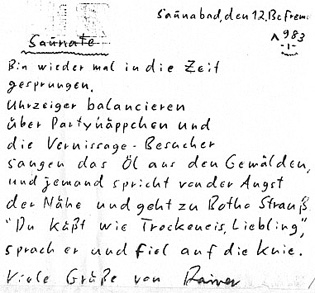 Saűnabad, den 12. Befrem.
1983
Saűnate
Bin wieder mal in die Zeit
gesprungen.
Uhrzeiger balancieren
über Partyhäppchen und
die Vernissage-Besucher
saugen das Öl aus den Gemälden,
und jemand spricht von der Angst
der Nähe und geht zu Botho Strauß
"Du küßt wie Trockeneis, Liebling",
sprach er und fiel auf die Knie.
Viele Grüße von Rainer